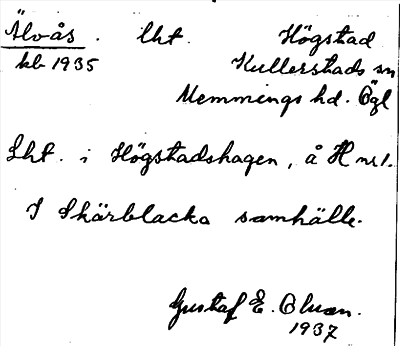 Älvås. lht. Högstad
kb 1935 Kullerstads sn
Memmings hd. Ögl
Lht. i Högstadshagen, å H nr 1.
I Skärblacka samhälle.
Gustaf E. Olsson.
1937